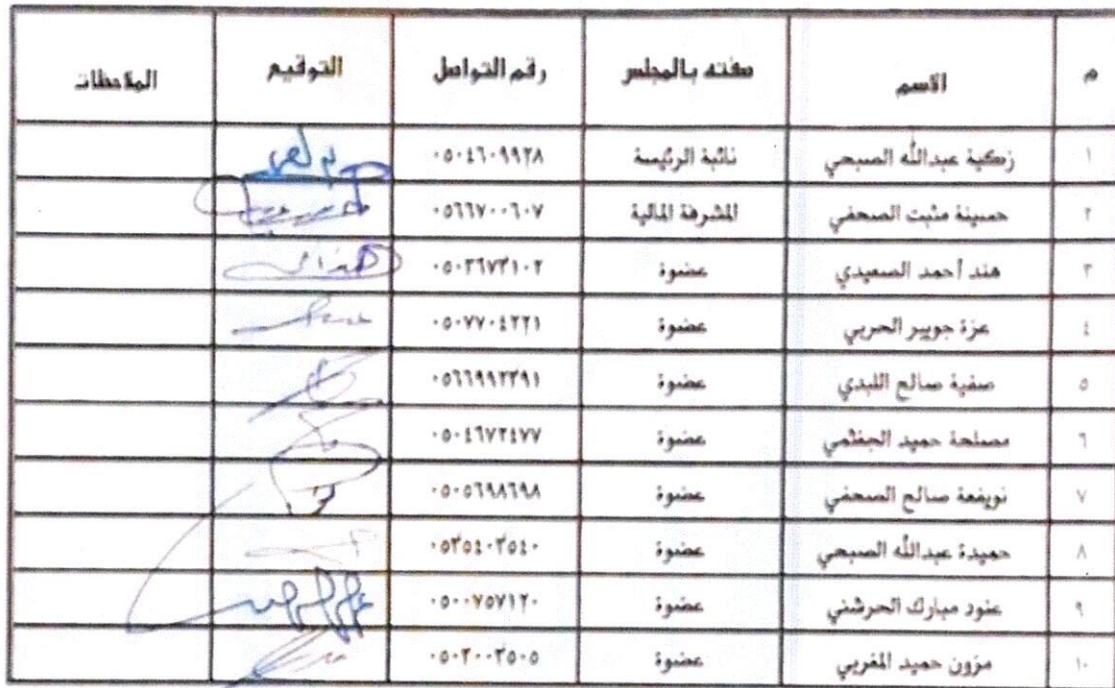 م الاسم صفته بالمجلس رقم التواصل التوقيع الملاحظات
١ زكية عبدالله الصبحي نائبة الرئيسة ٠٥٠٤٦٠٩٩٢٨
٢ حسينة مثبت الصحفي المشرفة المالية ٠٥٦٦٧٠٠٦٠٧
٣ هند أحمد الصعيدي عضوة ٠٥٠٣٦٧٣١٠٢
٤ عزة جويبر الحربي عضوة ٠٥٠٧٧٠٤٢٢١
٥ صفية صالح اللبدي عضوة ٠٥٦٦٩٩٢٣٩١
٦ مصلحة حميد الجفثمي عضوة ٠٥٠٤٦٧٢٤٧٧
٧ نويفعة صالح الصحفي عضوة ٠٥٠٥٦٩٨٦٩٨
٨ حميدة عبدالله الصبحي عضوة ٠٥٣٥٤٠٣٥٤٠
٩ عنود مبارك الحرشني عضوة ٠٥٠٠٧٥٧١٢٠
١٠ مزون حميد المغربي عضوة ٠٥٠٣٠٠٣٥٠٥